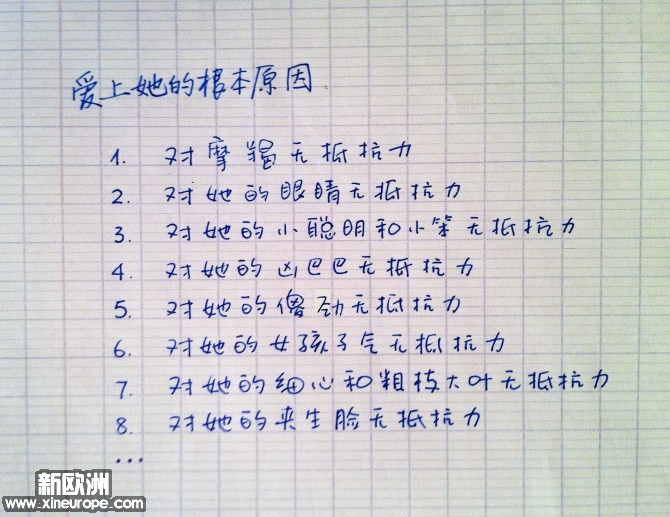 爱上她的根本原因
1. 对摩羯无抵抗力
2. 对她的眼睛无抵抗力
3. 对她的小聪明和小笨无抵抗力
4. 对她的凶巴巴无抵抗力
5. 对她的傻劲无抵抗力
6. 对她的女孩子气无抵抗力
7. 对她的细心和粗枝大叶无抵抗力
8. 对她的夹生脸无抵抗力
...
新欧洲
www.xineurope.com